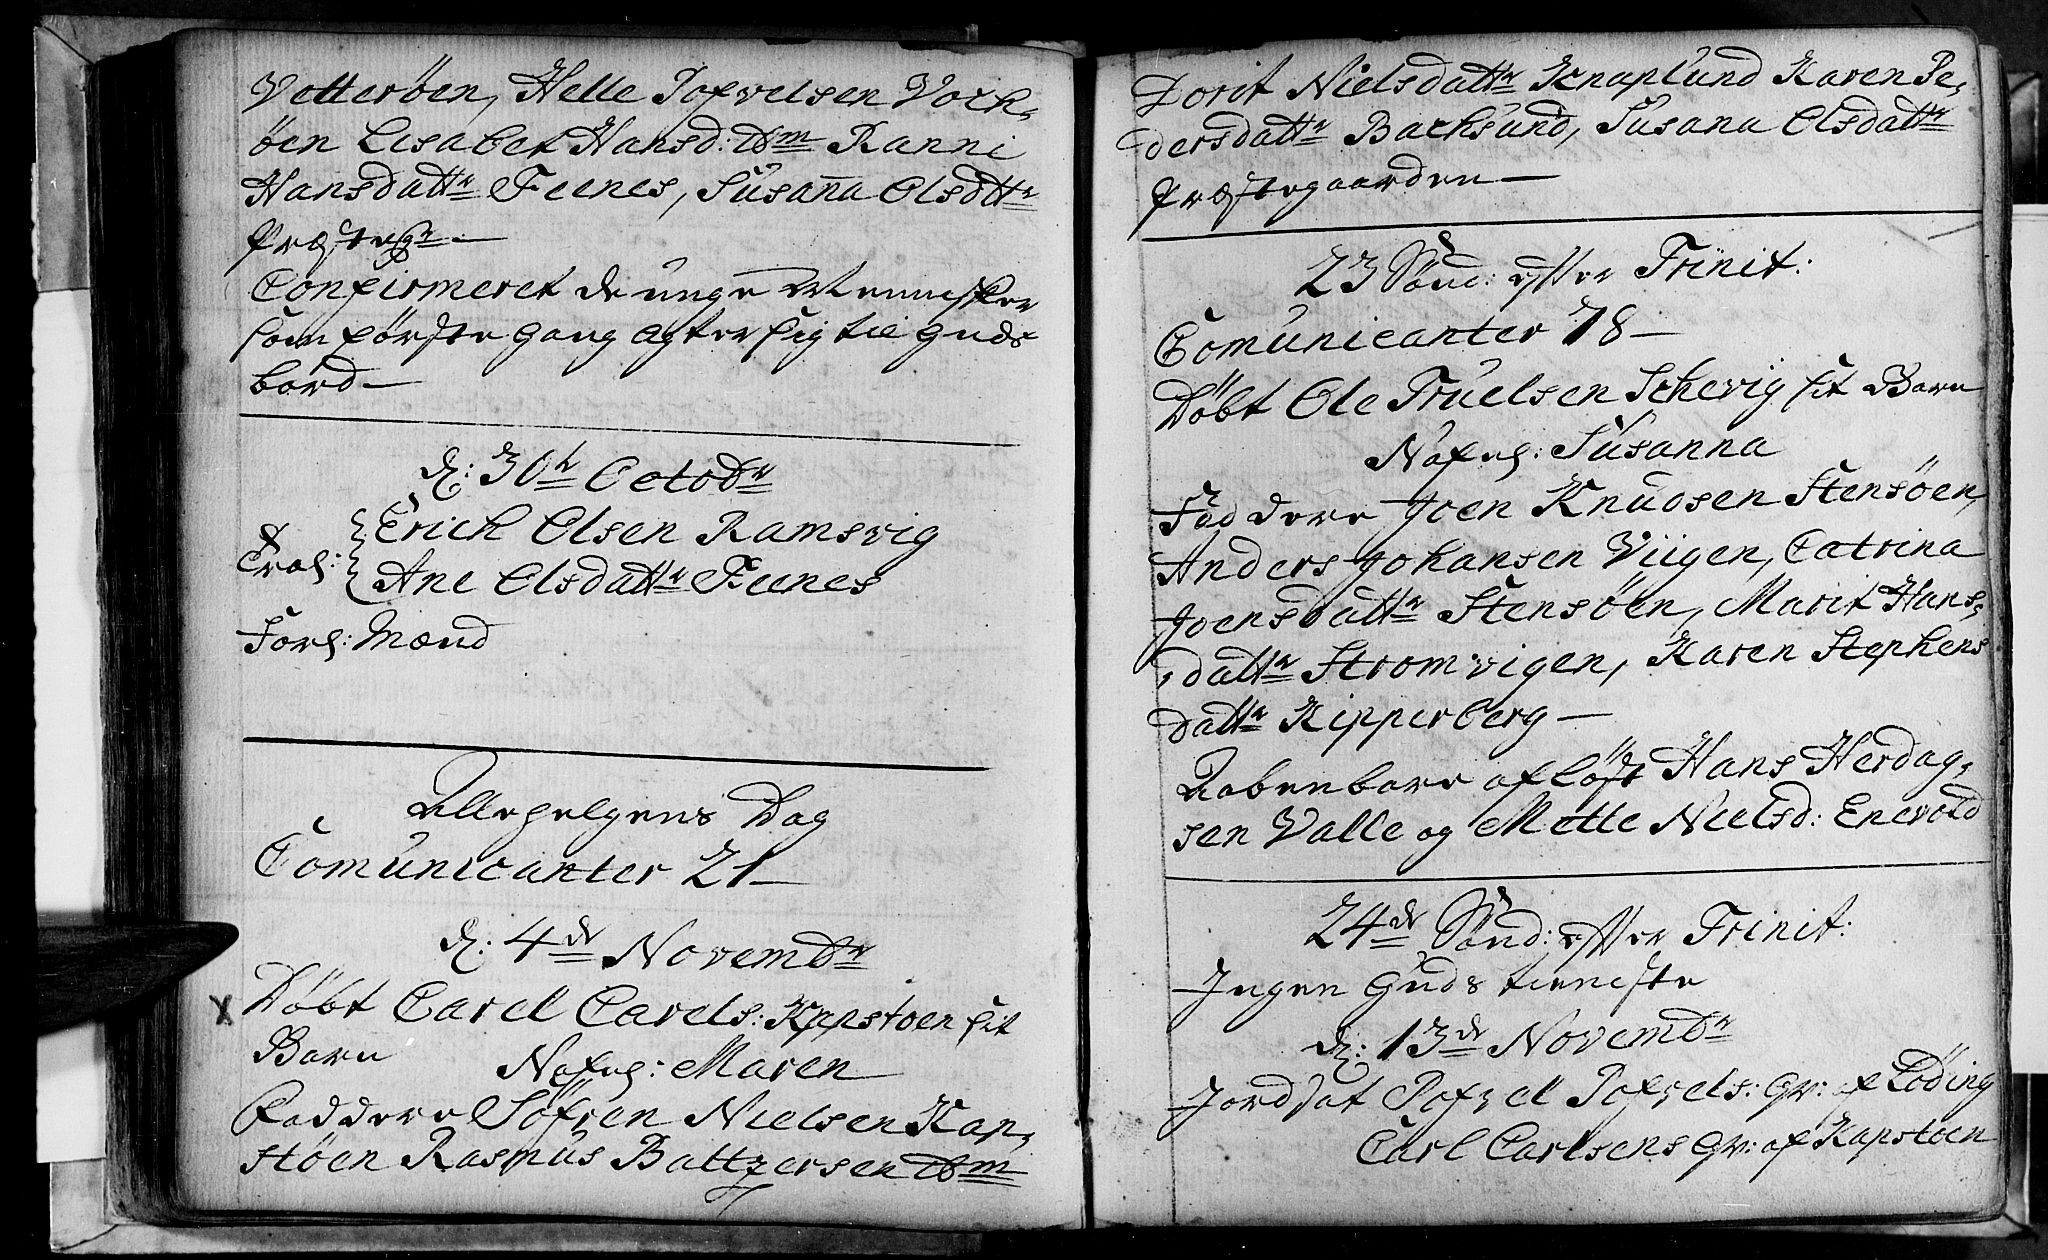 Vetterøen, Helle Pofvelsen Voch-
øen Lisabet Hansd: ibm Ranni
Hansdattr Feenes, Susanna Olsdttr
Præstegr —
Confirmeret de unge Mennisker
som første gang agter sig til Guds
bord —
d: 30te Octobr
Trol: Erich Olsen Ramsvig
Ane Olsdattr Feenes
Forl: Mænd
Allehelgens Dag
Comunicanter 21 —
d: 4de Novembr
X Døbt Carel Carels: Kapstøen sit
Barn Nafnl: Maren
Faddere Söfren Nielsen Kap-
støen Rasmus Baltzersen ibm
Dorit Nielsdattr Knaplund Karen Pe-
dersdattr Bachsund, Susana Olsdattr
Præstegaarden —
23 Sønd: efter Trinit:
Comunicanter 78 —
Døbt Ole Truelsen Schevig sit Barn
Nafnl: Susanna
Faddere Joen Knudsen Stensøen,
Anders Johansen Viigen, Catrina
Joensdattr Stensøen, Marit Hans-
dattr Stromvigen, Karen Stephens
dattr Kipperberg —
Aabenbare afløst Hans Herdag-
sen Valle og Mette Nielsd: Enevold
24de Sønd: efter Trinit:
Ingen Guds tieniste
d: 13de Novembr
Jordsat Pofvel Pofvels: Gr: af Løding
Carl Carlsens Gr: af Kapstøen